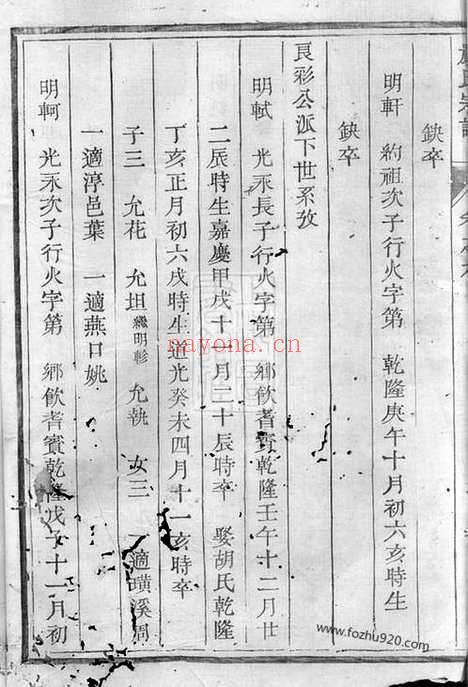 缺卒
明軒　約祖次子行火字第　乾隆庚午十月初六亥時生
缺卒
良彩公派下世系攷
明軾　光永長子行火字第　鄉飲耆賓乾隆壬午十二月廿
二辰時生嘉慶甲戌十一月二十辰時卒　娶胡氏乾隆
丁亥正月初六戌時生道光癸未四月十一亥時卒
子三　允花　允坦繼明軫　允執　女三　一適璜溪周
一適淳邑葉　一適燕口姚
明軻　光永次子行火字第　鄉飲耆賓乾隆戊子十一月初
nayona.cn
www.fozhu920.com